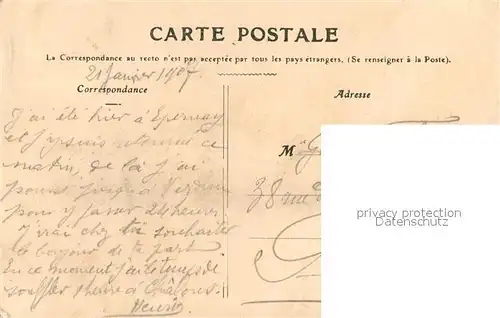 CARTE POSTALE
La Correspondance au recto n'est pas acceptée par tous les pays étrangers. (Se renseigner à la Poste).
21 Janvier 1907.
Correspondance
Adresse
J'ai été hier à Epernay
et j'y suis retourné ce
matin, de là j'ai
poussé jusqu'à
pour y passer 24 heures
J'irai chez souhaiter
le bonjour de ta part
En ce moment j'ai le temps de
souffler 1 heure à Châlons.
Henri
M
38 rue
privacy protection
Datenschutz.